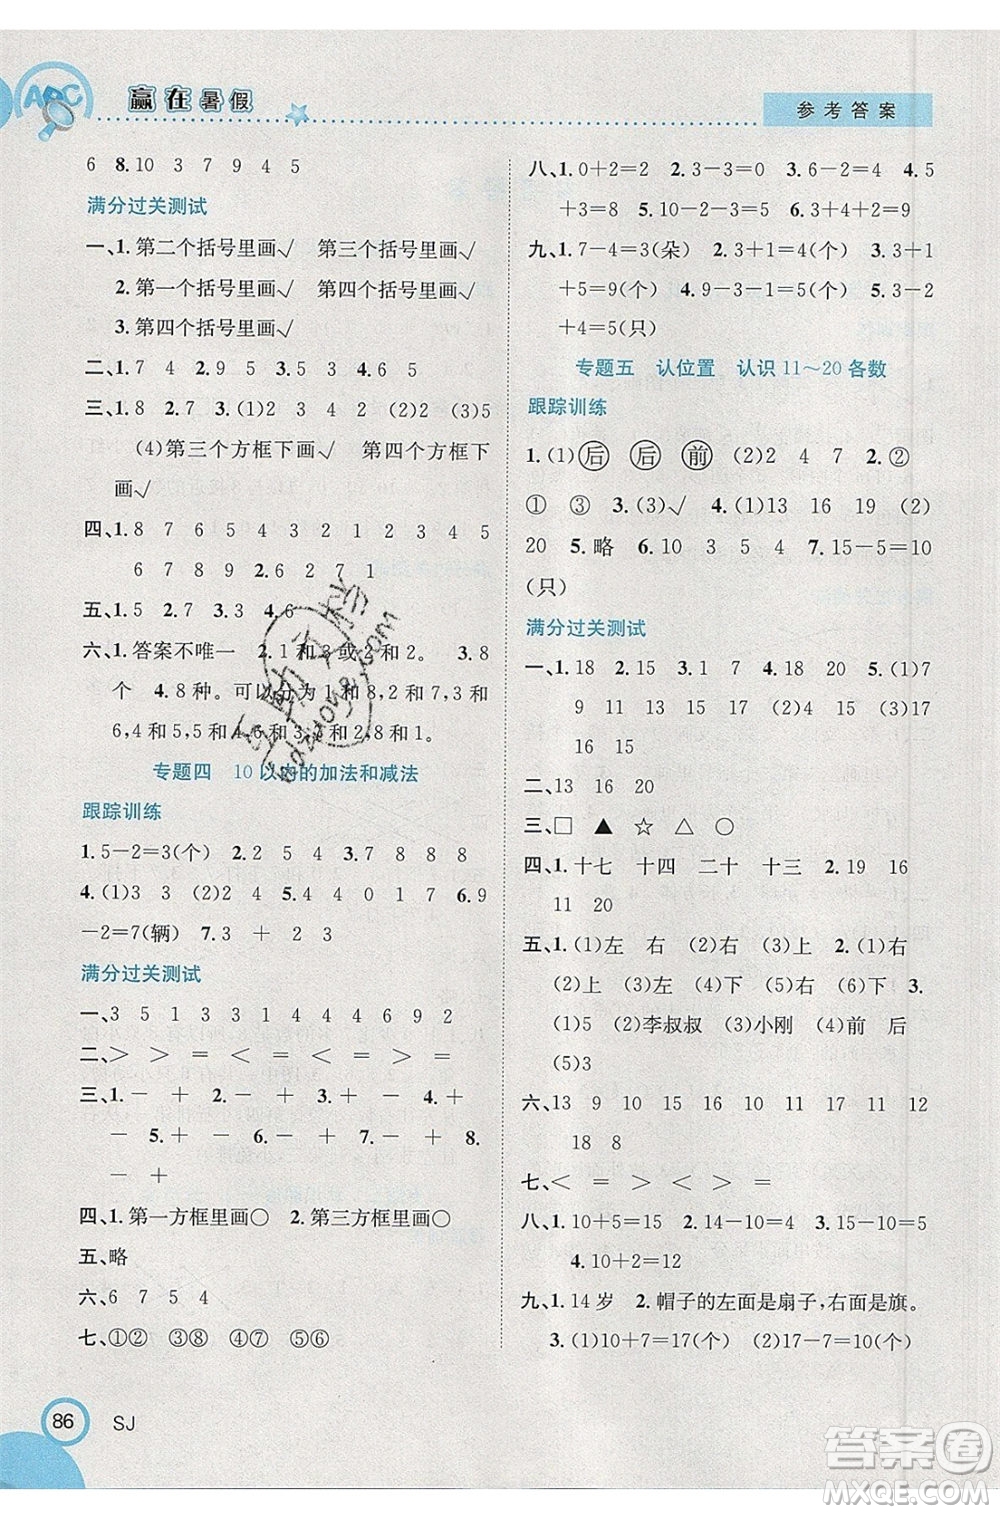 ABC
赢在暑假
参考答案
6 8.10 3 7 9 4 5
满分过关测试
一、1.第二个括号里画√ 第三个括号里画√
2.第一个括号里画√ 第四个括号里画√
3.第四个括号里画√
二、1.7 4 2.9 5 3.2 9 4.8 7
三、1.8 2.7 3.(1)2 3 4 2 (2)2 (3)5
(4)第三个方框下画√ 第四个方框
下画√
四、1.8 7 6 5 4 3 2 1 2 3 4 5
6 7 8 9 2.6 2 7 1
五、1.5 2.7 3.3 4.6
六、1.答案不唯一 2.1和3或2和2。 3.8
个 4.8种。可以分为1和8,2和7,3和
6,4和5,5和4,6和3,7和2,8和1。
专题四 10以内的加法和减法
跟踪训练
1.5-2=3(个) 2.2 5 4 3.7 8 8 8
4.(1)3 3 (2)2 5.4 0 4 1 7 6.9
-2=7(辆) 7.3 + 2 3
满分过关测试
一、3 5 1 3 3 1 4 4 6 9 2
二、> > = < = < > <
三、1.- + 2.- + 3.+ - 4.+
- 5.+ - 6.+ + 7.+ - 8.
- +
四、1.第一方框里画○ 2.第三方框里画○
五、略
六、6 7 5 4
七、①② ③④ ⑤⑥
八、1.0+2=2 2.4-3=1 3.7-3=4 4.5
+3=8 5.10-8=2 6.3+4+2=9
九、1.7-4=3(朵) 2.3+1=4(个) 3.3+1
+5=9(个) 4.9-2-5=2(个) 5.3-2
+4=5(只)
专题五 认位置 认识11~20各数
跟踪训练
1.(1)后 后 前 (2)2 4 7 2.②
① ③ 3.(3)√ 4.(1)13 14 15 (2)
20 5.略 6.10 3 5 4 7.15-5=10
(只)
满分过关测试
一、1.18 2.15 3.1 7 4.17 18 5.(1)7
9 11 13 15 17 (2)4 16 (3)17
16 15
二、13 16 20
三、□ ▲ ☆ △ ○
四、1.十七 十四 二十 十三 2.19 16
11 20
五、1.(1)左 右 (2)右 (3)上 2.(1)右
(2)上 (3)左 (4)下 (5)下 右 3.
(1)5 (2)李叔叔 (3)小刚 (4)前 后
(5)3
六、13 9 10 16 10 10 12 14 2
18 8
七、< = < > > =
八、1.10+5=15 2.14-10=4 3.15-10=5
4.10+2=12
九、1.14岁 2.帽子的左面是扇子,右面是旗。
3.(1)10+7=17(个) (2)17-10=7(个)
86 SJ
答案圈
MXQE.COM